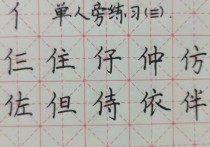 亻 单人旁练习(三).
仨 住 仔 仲 仿
佐 但 侍 依 伴